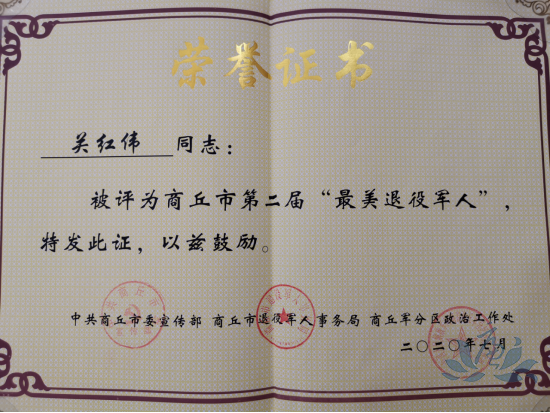 荣誉证书
关红伟 同志：
被评为商丘市第二届“最美退役军人”，
特发此证，以兹鼓励。
中共商丘市委宣传部 商丘市退役军人事务局 商丘军分区政治工作处
二〇二〇年七月